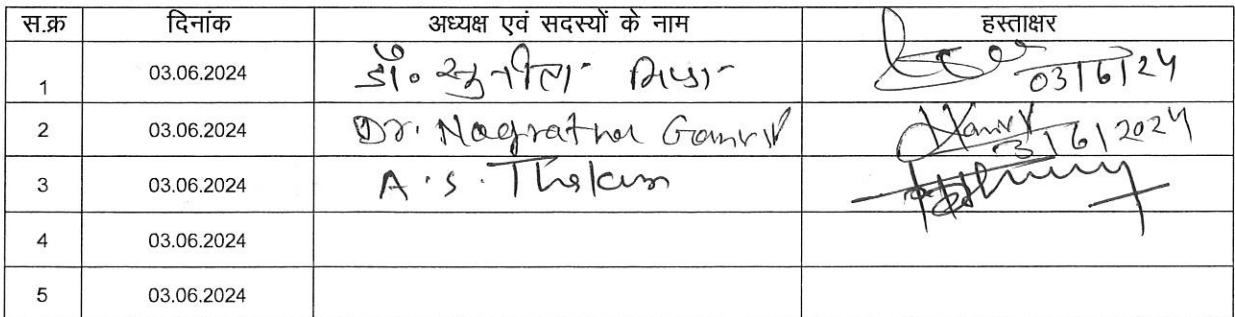 स.क्र दिनांक अध्यक्ष एवं सदस्यों के नाम हस्ताक्षर
1 03.06.2024 डॉ. सुनीता मिश्रा 03/6/24
2 03.06.2024 Dr. Nagratna Ganvir 3/6/2024
3 03.06.2024 A.S. Thakur
4 03.06.2024
5 03.06.2024